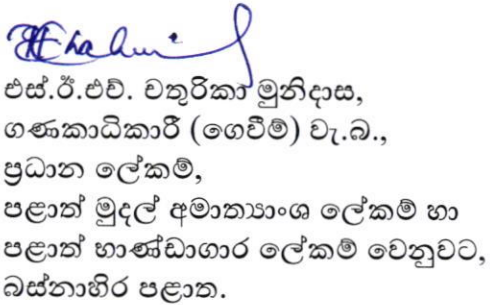 එස්.ඊ.එච්. චතුරිකා මුනිදාස,
ගණකාධිකාරී (ගෙවීම්) වැ.බ.,
ප්‍රධාන ලේකම්,
පළාත් මුදල් අමාත්‍යාංශ ලේකම් හා
පළාත් භාණ්ඩාගාර ලේකම් වෙනුවට,
බස්නාහිර පළාත.